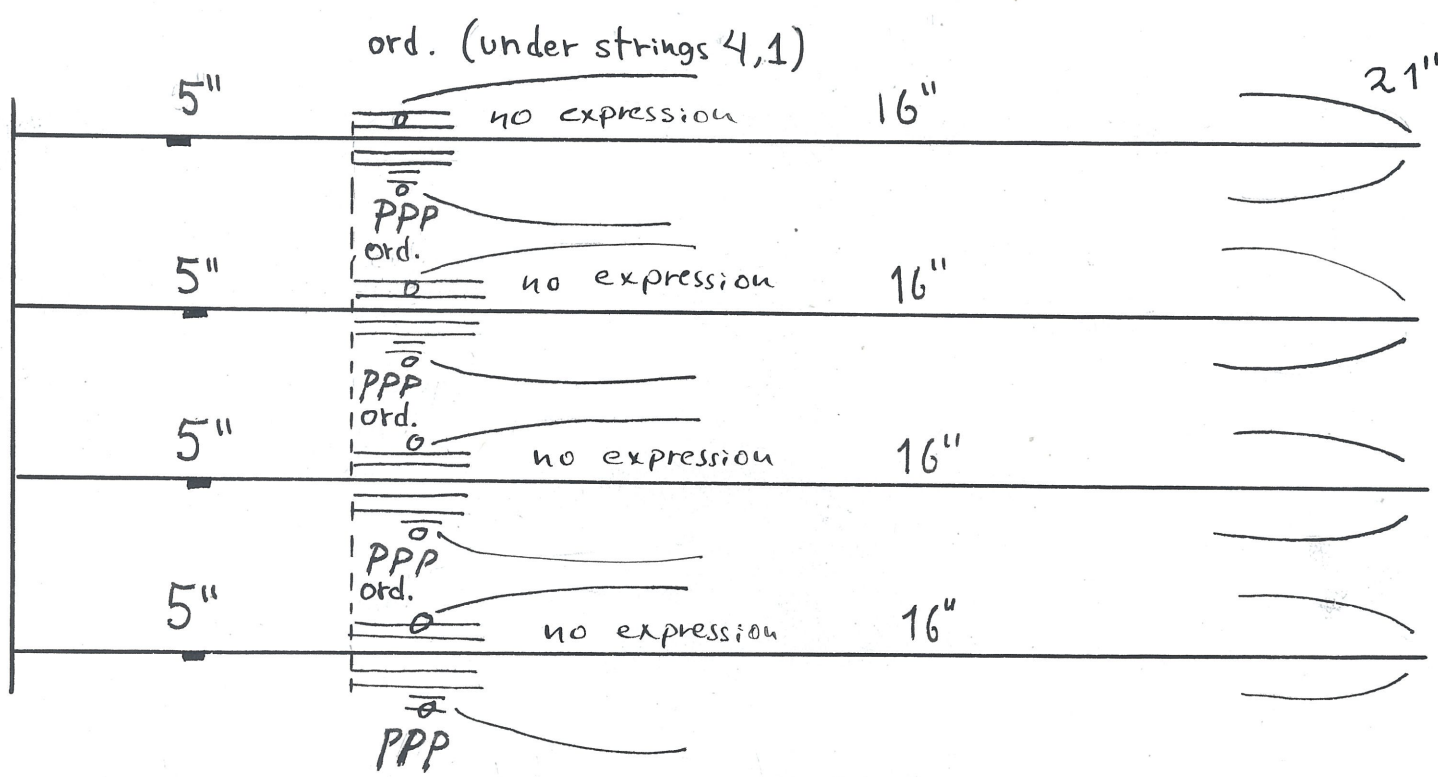 ord. (under strings 4,1)
5" no expression 16" 21"
PPP
ord.
5" no expression 16"
PPP
ord.
5" no expression 16"
PPP
ord.
5" no expression 16"
PPP